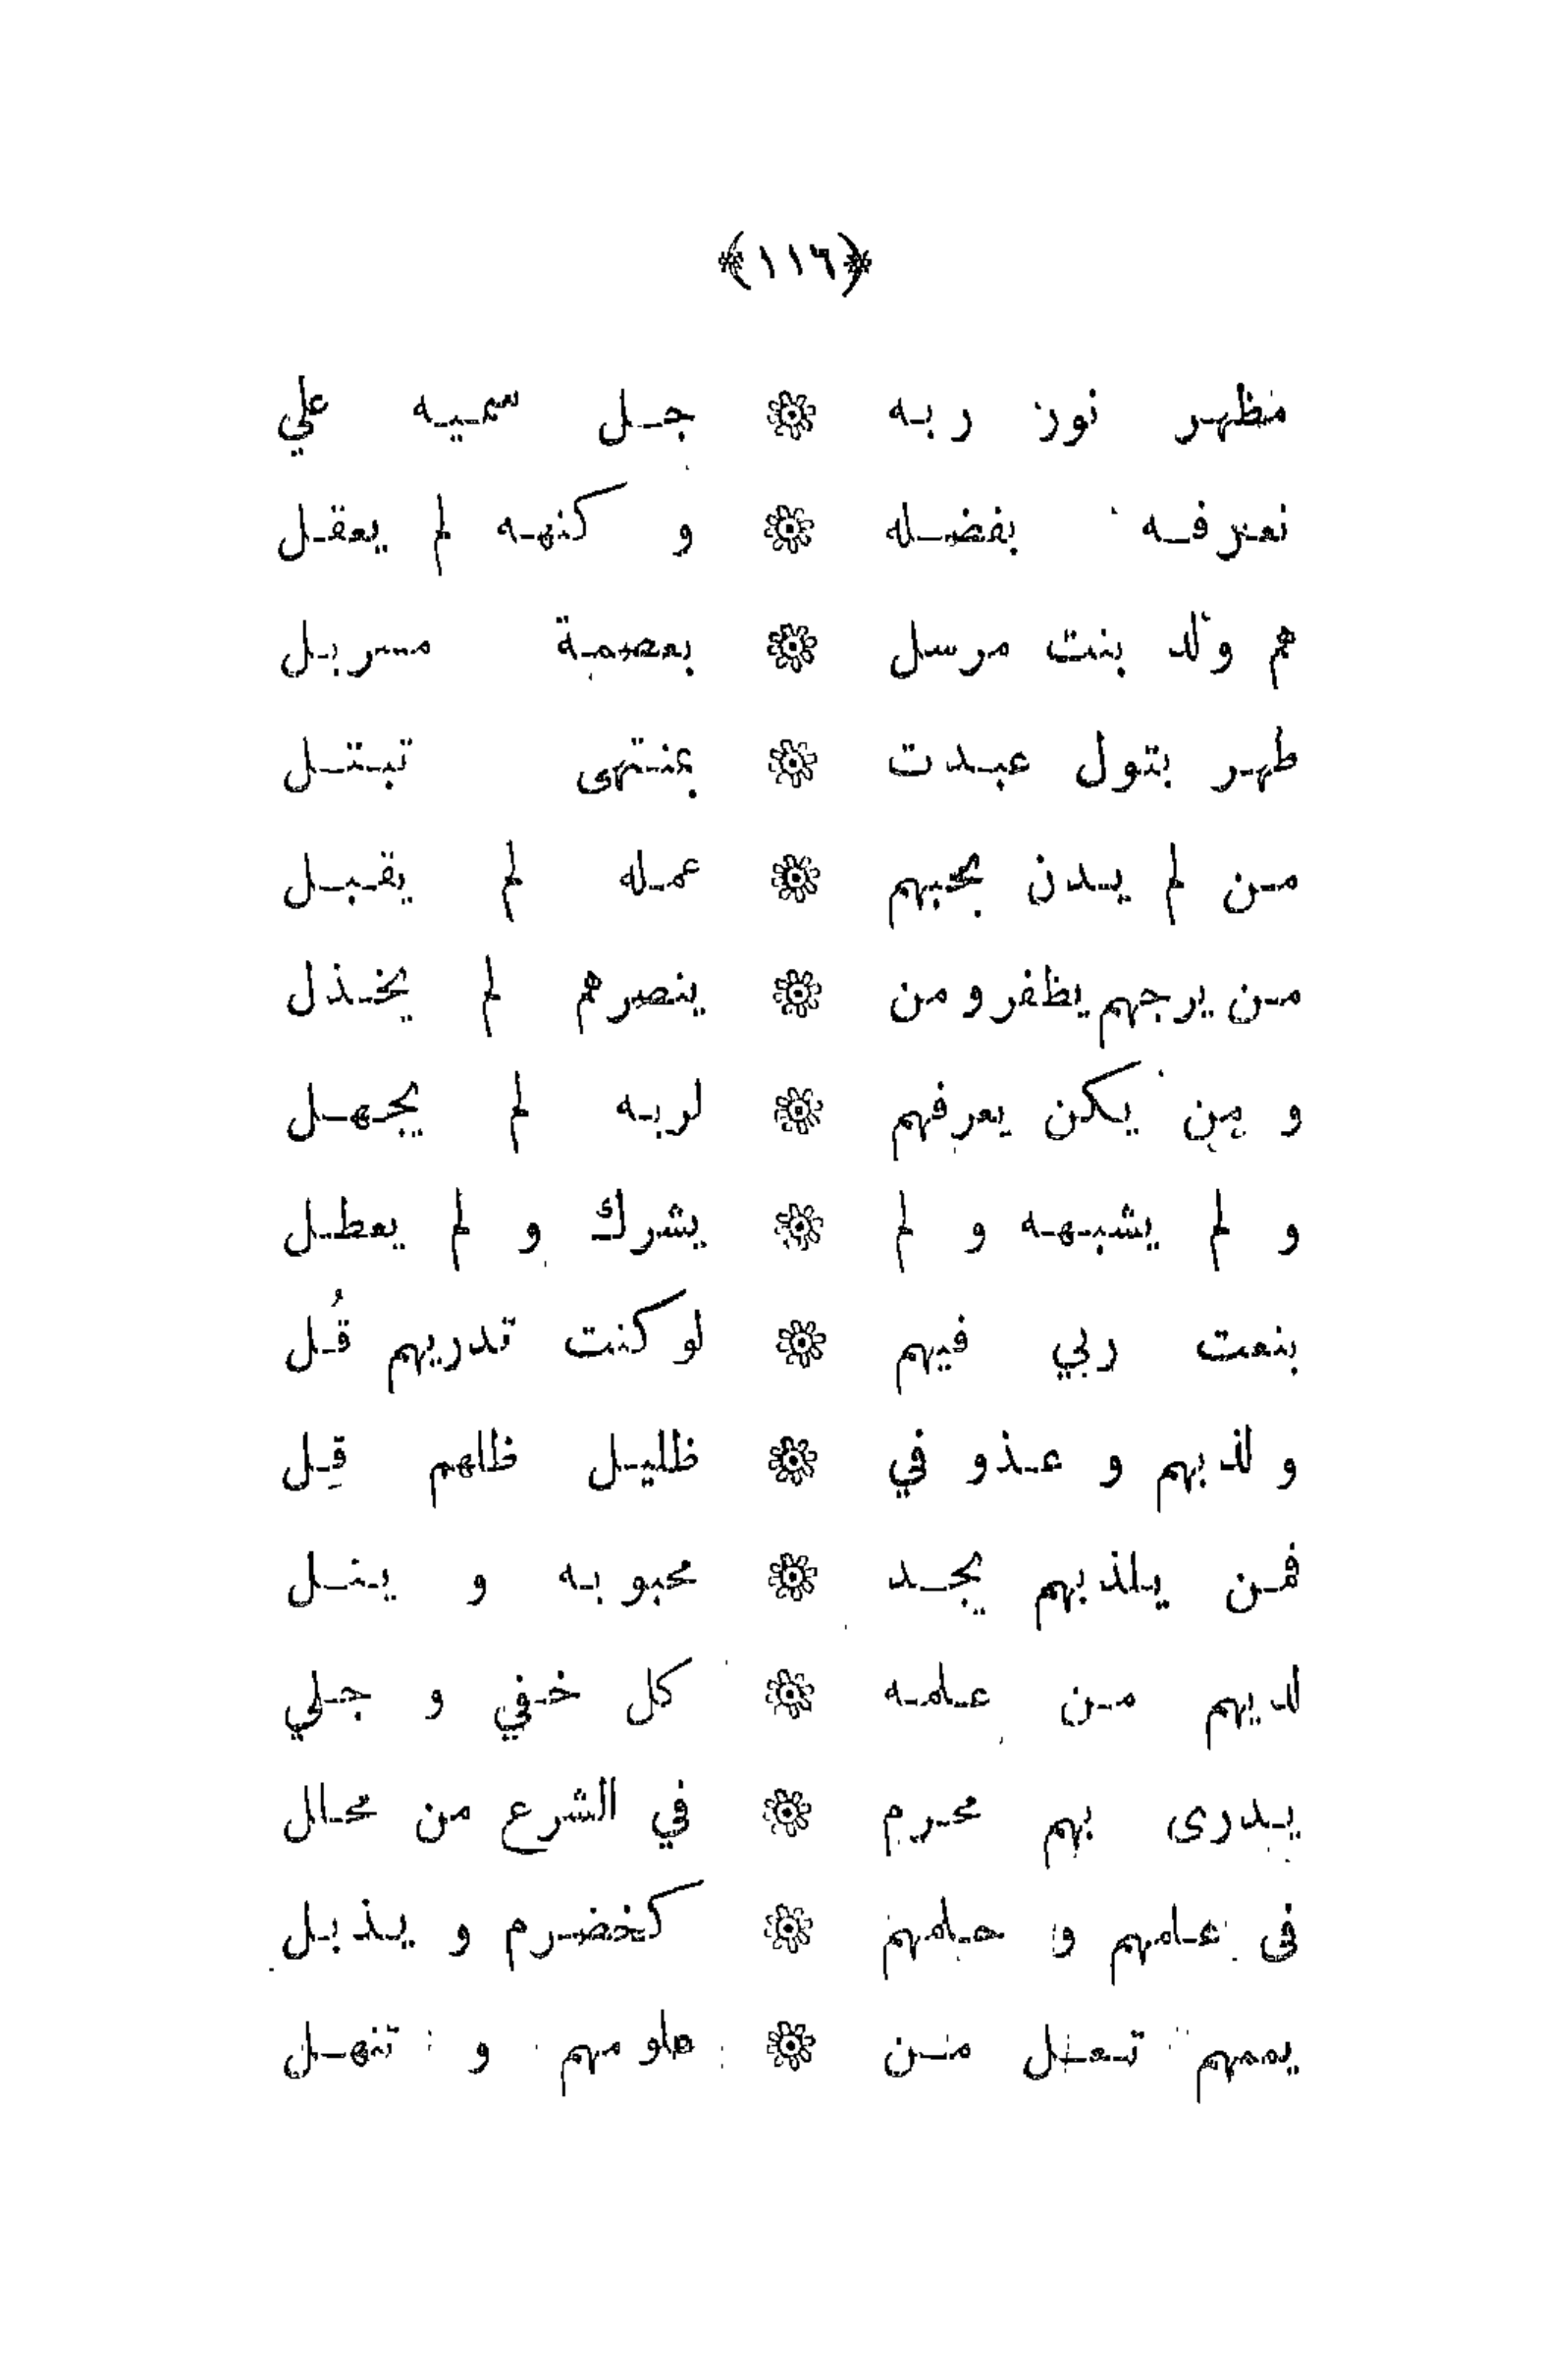 ﴿١١٦﴾
مظهر نور ربه ۞ جل سميه علي
نعرفه بفضله ۞ و كنهه لم يعقل
هم ولد بنت مرسل ۞ بعصمة مسربل
طهر بتول عبدت ۞ بمنتهى تبتل
من لم يدن بحبهم ۞ عمله لم يقبل
من يرجهم يظفر و من ۞ ينصرهم لم يخذل
و من يكن يعرفهم ۞ لربه لم يجهل
و لم يشبهه و لم ۞ يشرك و لم يعطل
بنعت ربي فيهم ۞ لو كنت تدريهم قُل
و لذ بهم و عذ و في ۞ ظليل ظلهم قِل
فمن يلذ بهم يجد ۞ محبوبه و ينل
لديهم من علمه ۞ كل خفي و جلي
يدرى بهم محرم ۞ في الشرع من محلل
فى علمهم و حلمهم ۞ كخضرم و يذبل
يممهم تعل من ۞ علومهم و تنهل